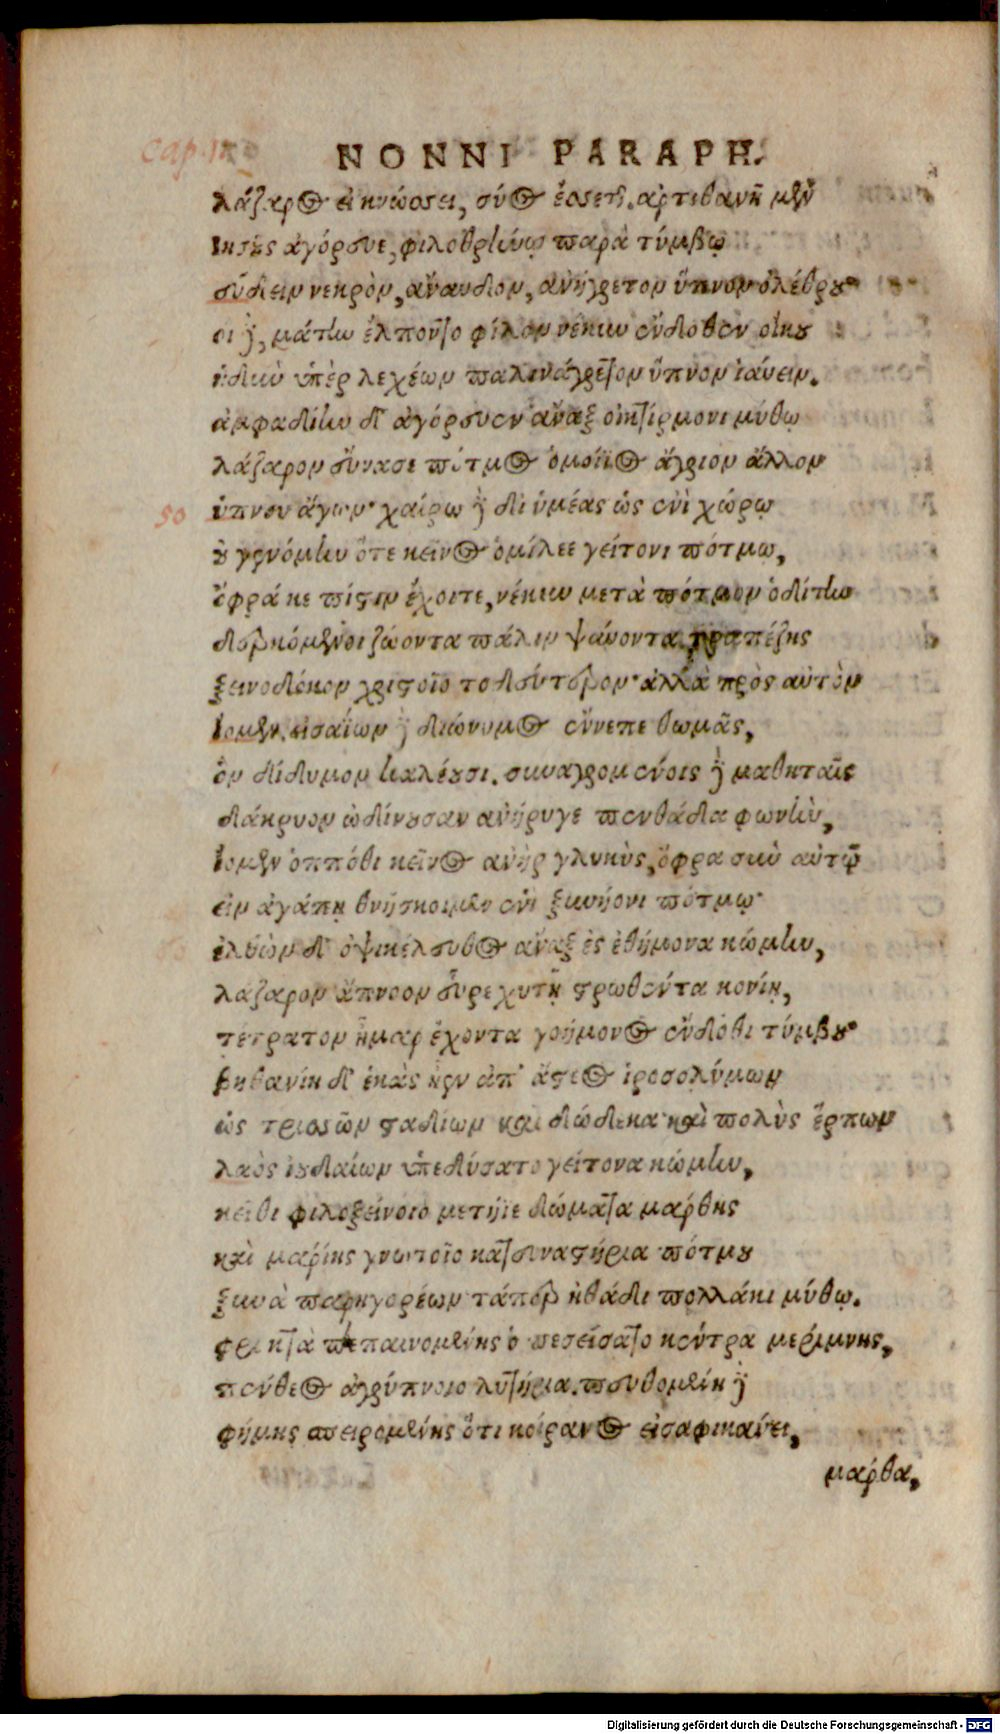 Cap. 11
NONNI PARAPH.
λάζαρος εἰ κνώσσει, σύος ἔσσεται. ἀρτιθανῆ μὲν
Ἰησοῦς ἀγόρευε, φιλοθρήνῳ παρὰ τύμβῳ
εὕδειν νεκρὸν, ἄναυδον, ἀνήγρετον ὕπνον ὀλέθρου·
οἱ δὲ, μάτην ἔλποντο φίλον νέκυν ἔνδοθεν οἴκου
ἡδὺν ὑπὲρ λεχέων παλινάγρετον ὕπνον ἰαύειν.
ἀμφαδίην δ' ἀγόρευεν ἄναξ οἰκτίρμονι μύθῳ
λάζαρον εὔνασε πότμος ὁμοίϊος ἄγριον ἄλλον
50 ὕπνον ἄγων· χαίρω δὲ δι' ὑμέας ὡς ἐνὶ χώρῳ
οὐ γενόμην ὅτε κεῖνος ὁμίλεε γείτονι πότμῳ,
ὄφρά κε πίστιν ἔχοιτε, νέκυν μετὰ πότμον ὁδίτην
δερκόμενοι ζώοντα πάλιν ψαύοντα τραπέζης
ξεινοδόκον χριστοῖο τὸ δεύτερον· ἀλλὰ πρὸς αὐτὸν
ἴομεν. εἰσαΐων δὲ διώνυμος ἔννεπε θωμᾶς,
ὃν δίδυμον καλέουσι. συναγρομένοις δὲ μαθηταῖς
δάκρυον ὠδίνουσαν ἀνήρυγε πενθάδα φωνὴν,
ἴομεν ὁππόθι κεῖνος ἀνὴρ γλυκὺς, ὄφρα σὺν αὐτῷ
εἰν ἀγάπῃ θνήσκοιμεν ἑνὶ ξυνήονι πότμῳ·
ἐλθὼν δ' ὀψικέλευθος ἄναξ ἐς ἐθήμονα κώμην,
λάζαρον ἄπνοον εὗρε χυτῇ στρωθέντα κονίῃ,
τέτρατον ἦμαρ ἔχοντα γοήμονος ἔνδοθι τύμβου·
βηθανίη δ' ἑκὰς ἦεν ἀπ' ἄστεος ἱεροσολύμων
ὡς τρισσῶν σταδίων καὶ δώδεκα καὶ πολὺς ἕρπων
λαὸς ἰουδαίων ὑπεδύσατο γείτονα κώμην,
κεῖθι φιλοξείνοιο μετήϊε δώματα μάρθης
καὶ μαρίης γνωτοῖο κατευναστήρια πότμου
ξυνὰ παρηγορέων τάπερ ἠθάδι πολλάκι μύθῳ.
φρικτὰ πεπαινομένης ὁ πεσείσατο κέντρα μερίμνης,
πένθεος ἀγρύπνοιο λυτήρια. πευθομένη δὲ
φήμης σπειρομένης ὅτι κοίρανος εἰσαφικάνει,
μάρθα,
Digitalisierung gefördert durch die Deutsche Forschungsgemeinschaft - DFG